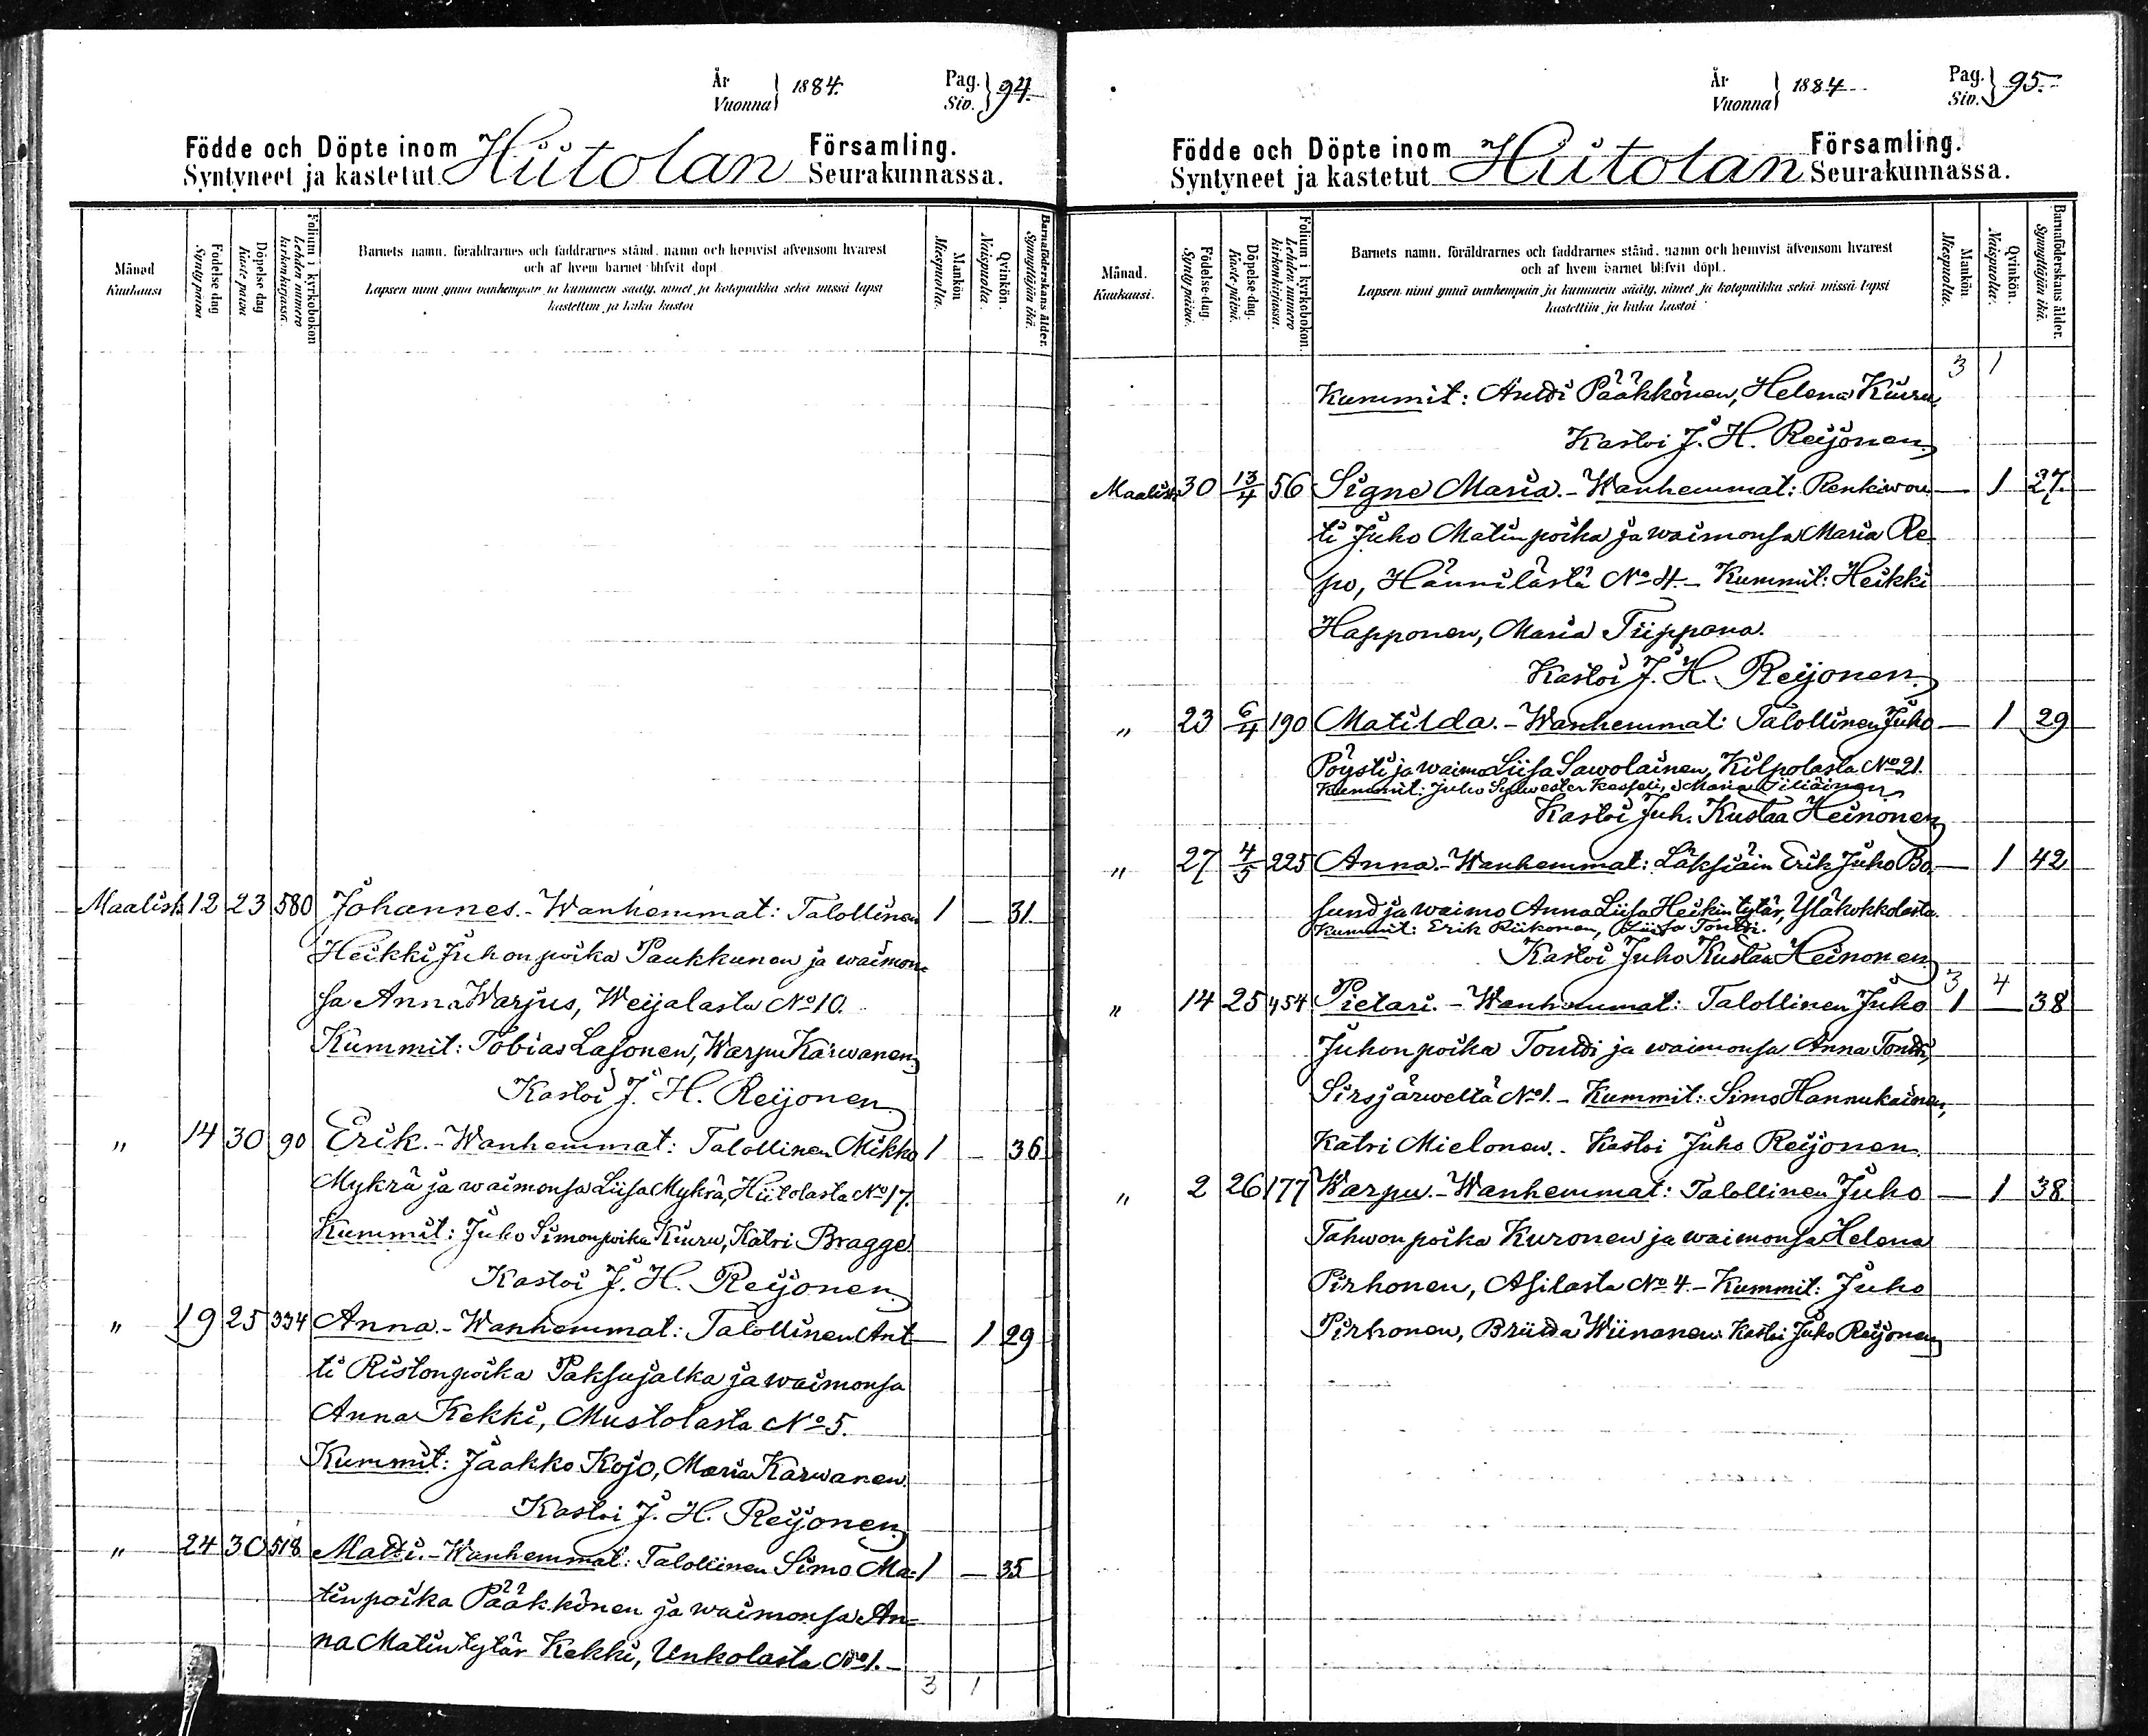 År
Vuonna } 1884.
Pag.
Siv. } 94.
Födde och Döpte inom Hiitolan Församling.
Syntyneet ja kastetut Seurakunnassa.
Månad
Kuukausi
Födelse dag
Syntypäivä
Döpelse dag
Kaste päivä
Folium i kyrkobokon
Lehden numero
kirkonkirjassa.
Barnets namn, föräldrarnes och faddrarnes stånd, namn och hemvist äfvensom hvarest
och af hvem barnet blifvit döpt.
Lapsen nimi ynnä vanhempain ja kummein sääty, nimet ja kotopaikka sekä missä lapsi
kastettiin ja kuka kastoi
Mankön
Miespuolta.
Qvinkön.
Naispuolta.
Barnaföderskans ålder.
Synnyttäjän ikä.
Maalisk. 12 23 580 Johannes. - Wanhemmat: Talollinen 1 — 31
Heikki Juhonpoika Paukkunen ja waimon-
sa Anna Warjus, Weijalasta No 10.
Kummit: Tobias Lasonen, Warpu Karwanen.
Kastoi J. H. Reijonen.
" 14 30 90 Erik. - Wanhemmat: Talollinen Mikko 1 — 36
Mykrä ja waimonsa Liisa Mykrä, Hiitolasta No 17.
Kummit: Juho Simonpoika Kiuru, Katri Bragge.
Kastoi J. H. Reijonen.
" 19 25 334 Anna. - Wanhemmat: Talollinen Ant — 1 29
ti Ristonpoika Paksujalka ja waimonsa
Anna Kekki, Mustolasta No 5.
Kummit: Jaakko Kojo, Maria Karwanen.
Kastoi J. H. Reijonen.
" 24 30 518 Matti. - Wanhemmat: Talollinen Simo Ma- 1 — 35
tinpoika Pääkkönen ja waimonsa An-
na Matintytär Kekki, Unkolasta No 1. -
3 1
År
Vuonna } 1884
Pag.
Siv. } 95.
Födde och Döpte inom Hiitolan Församling.
Syntyneet ja kastetut Seurakunnassa.
Månad.
Kuukausi.
Födelse-dag.
Syntypäivä.
Döpelse-dag.
Kaste-päivä.
Folium i kyrkobokon.
Lehden numero
kirkonkirjassa.
Barnets namn, föräldrarnes och faddrarnes stånd, namn och hemvist äfvensom hvarest
och af hvem barnet blifvit döpt.
Lapsen nimi ynnä vanhempain ja kummein sääty, nimet ja kotopaikka sekä missä lapsi
kastettiin ja kuka kastoi
Mankön
Miespuolta.
Qvinkön.
Naispuolta.
Barnaföderskans ålder.
Synnyttäjän ikä.
3 1
Kummit: Antti Pääkkönen, Helena Kiuru.
Kastoi J. H. Reijonen.
Maalisk. 30 13/4 56 Signe Maria. - Wanhemmat: Renkiwou — 1 27.
ti Juho Matinpoika ja waimonsa Maria Re
po, Hännilästä No 4. - Kummit: Heikki
Happonen, Maria Tiippana.
Kastoi J. H. Reijonen.
" 23 6/4 190 Matilda. - Wanhemmat: Talollinen Juho — 1 29
Pöysti ja waimo Liisa Sawolainen, Kilpolasta No 21.
Kummit: Juho Sylwester Kasseli, Maria Tiliäinen
Kastoi Juh. Kustaa Heinonen
" 27 4/5 225 Anna. - Wanhemmat: Läksiäin Erik Juho Bo — 1 42
sund ja waimo Anna Liisa Heikintytär, Yläkokkolasta.
Kummit: Erik Riikonen, Liisa Tontti.
Kastoi Juho Kustaa Heinonen
3 4
" 14 25 454 Pietari. - Wanhemmat: Talollinen Juho 1 — 38
Juhonpoika Tontti ja waimonsa Anna Tontti,
Sirsjärweltä No 1. - Kummit: Simo Hannukainen,
Katri Mielonen. - Kastoi Juho Reijonen.
" 2 26 177 Warpu. - Wanhemmat: Talollinen Juho — 1 38
Tahwonpoika Kuronen ja waimonsa Helena
Pirhonen, Asilasta No 4. - Kummit: Juho
Pirhonen, Briitta Wiinanen. Kastoi Juho Reijonen